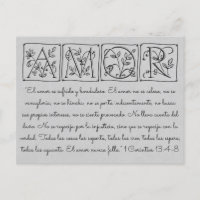 AMOR
"El amor es sufrido y bondadoso. El amor no es celoso, no se
vanagloria, no se hincha, no se porta indecentemente, no busca
sus propios intereses, no se siente provocado. No lleva cuenta del
daño. No se regocija por la injusticia, sino que se regocija con la
verdad. Todas las cosas las soporta, todas las cree, todas las espera,
todas las aguanta. El amor nunca falla." 1 Corintios 13:4-8